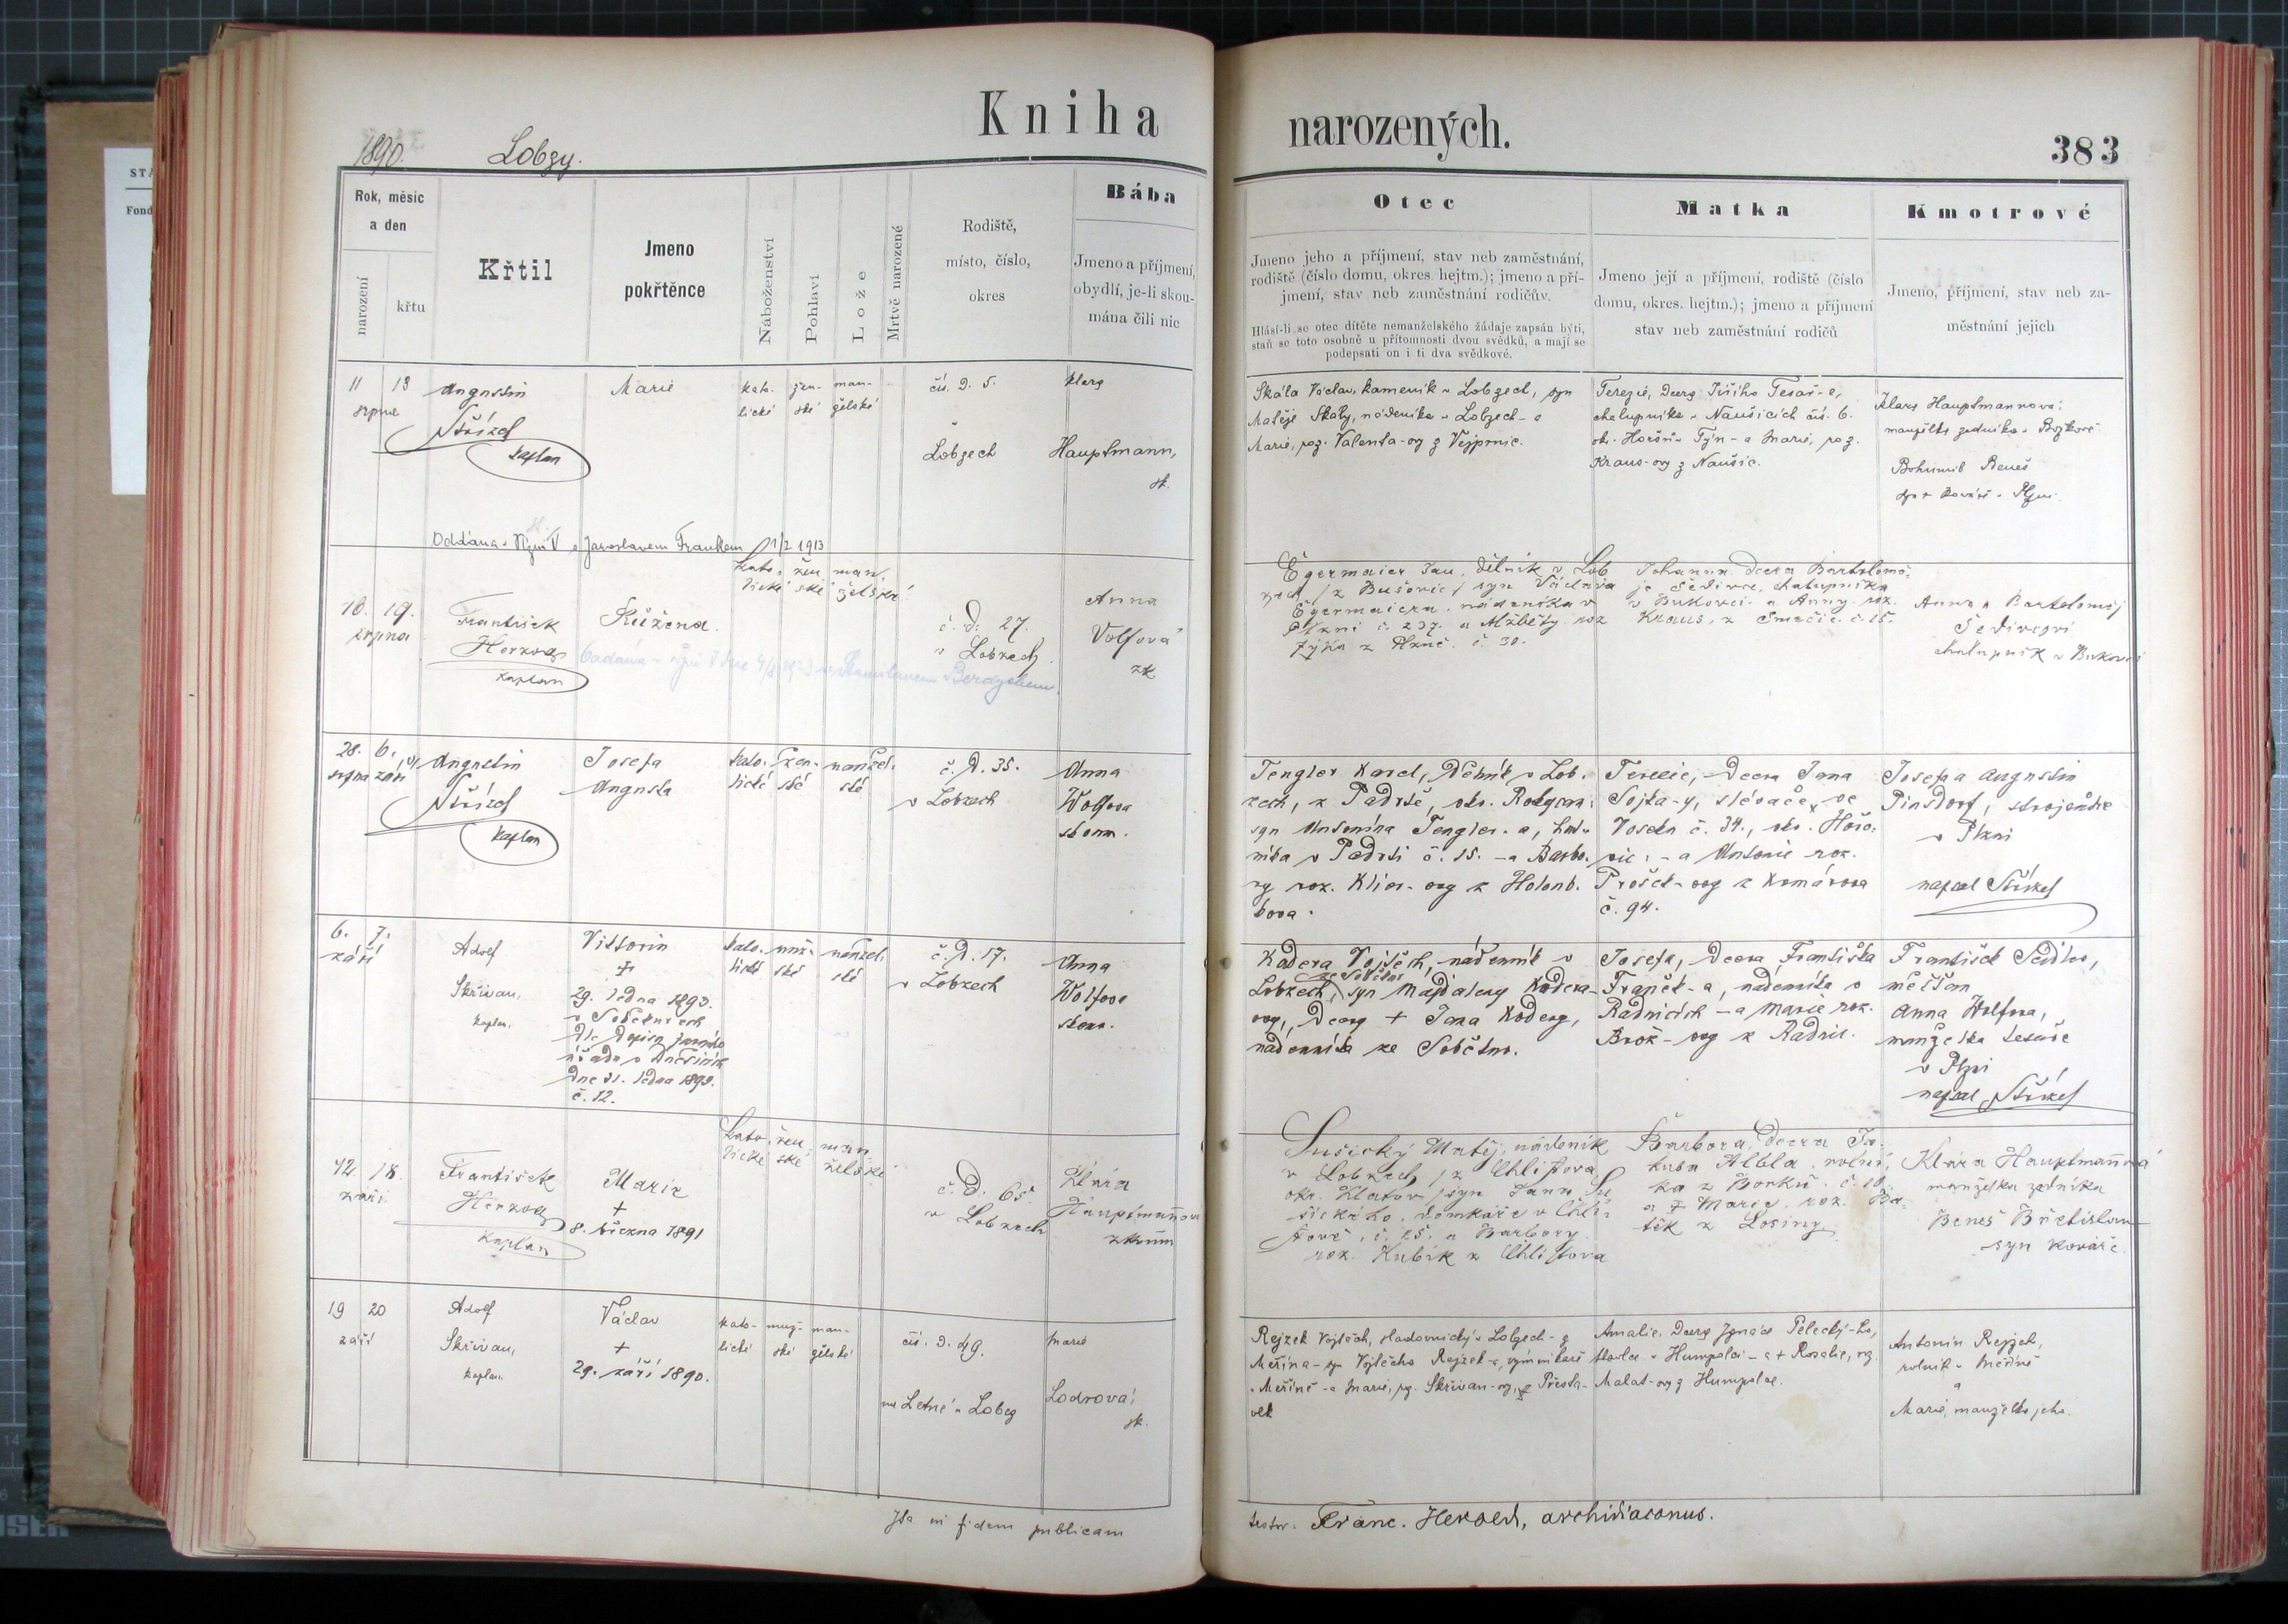 Kniha
narozených.
383
1890.
Lobzy.
Rok, měsíc
a den
narození
křtu
Křtil
Jmeno
pokřtěnce
Náboženství
Pohlaví
Lože
Mrtvě narozené
Rodiště,
místo, číslo,
okres
Bába
Jmeno a příjmení,
obydlí, je-li skou-
mána čili nic
Otec
Jmeno jeho a příjmení, stav neb zaměstnání,
rodiště (číslo domu, okres. hejtm.); jmeno a pří-
jmení, stav neb zaměstnání rodičův.
Hlásí-li se otec dítěte nemanželského žádaje zapsán býti,
staň se toto osobně u přítomnosti dvou svědků, a mají se
podepsati on i ti dva svědkové.
Matka
Jmeno její a příjmení, rodiště (číslo
domu, okres. hejtm.); jmeno a příjmení
stav neb zaměstnání rodičů
Kmotrové
Jmeno, příjmení, stav neb za-
městnání jejich
11 13
srpna
Augustin
Střízel
kaplan
Marie
kato-
lické
žen-
ské
man-
želské
čís. d. 5.
Lobzech
Klara
Hauptmann,
zk.
Skála Václav, kameník v Lobzech, syn
Matěje Skály, nádeníka v Lobzech a
Marie, roz. Valenta-ovy z Vejprnic.
Terezie, dcera Jiřího Tesař-e,
chalupníka v Naušicích čís. 6.
ok. Horšův Týn - a Marie, roz.
Kraus-ovy z Naušic.
Klara Hauptmannová,
manželka zedníka v Božkově
Bohumil Beneš
syn kováře v Plzni.
Oddána v Plzni s Jaroslavem Franklem 1/2 1913
18. 19.
srpna
František
Herzog
kaplan
Růžena.
kato-
lické
žen
ské
man
želské
č. d. 27.
v Lobzech.
Anna
Volfová
zk.
Oddána v Plzni dne 1923 se Stanislavem Berdychem.
Egermaier Jan, dělník v Lob
zech /z Bušovic/ syn Václava
Egermaiera, nádeníka v
Plzni č. 237. a Alžběty roz
Zýka z Plzně. č. 30.
Johanna dcera Bartolomě-
je Šedivce, chalupníka
v Bukovci a Anny roz.
Kraus, z Smečic č. 15.
Anna a Bartoloměj
Šedivcovi
chalupník v Bukovci
28. 6.
srpna září
Augustin
Střízel
kaplan
Josefa
Augusta
kato-
lické
žen-
ské
manžel-
ské
č. d. 35.
v Lobzech
Anna
Wolfova
zkoum.
Tengler Karel, dělník v Lob-
zech, z Padrtě, okr. Rokycan.
syn Antonína Tengler-a, hut-
níka v Padrti č. 15. - a Barbo-
ry roz. Klier-ovy z Holoub-
kova.
Terezie, dcera Jana
Sojka-y, slévače, ve
Voseku č. 34., okr. Hořo-
vic. - a Antonie roz.
Prošek-ovy z Komárova
č. 94.
Josefa Augustin
Pinsdorf, strojníka
v Plzni
napsal Střízel
6. 7.
září
Adolf
Skřivan,
kaplan.
Viktorin
+
29. ledna 1893.
v Sobětuších
dle dopisu farního
úřadu v Dnešicích
dne 31. ledna 1893.
č. 12.
kato-
lické
muž-
ské
manžel-
ské
č. d. 17.
v Lobzech
Anna
Wolfova
zkoum.
Kadera Vojtěch, nádenník v
Lobzech, syn Majdaleny Kadera-
ovy, dcery + Jana Kadery,
nádenníka ze Sobětuš.
Josefa, dcera Františka
Franěk-a, nádenníka v
Radnicích - a Marie roz.
Brož-ovy z Radnic.
František Seidler,
měšťan
Anna Wolfova,
manželka tesaře
v Plzni
napsal Střízel
12 18.
září
František
Herzog
kaplan
Marie
+
8. března 1891
kato-
lické
žen
ské
man
želské
č. d. 65
v Lobzech
Klára
Hauptmannova
zkoum
Sušický Matěj, nádeník
v Lobzech /z Chlistova
okr. Klatov /syn Jana Su
šického, domkáře v Chli-
stově, č. 15. a Barbory
roz. Kubík z Chlistova
Barbora, dcera Ja-
kuba Albla, rolní-
ka z Borků. č. 10.
a + Marie, roz. Ba-
ték z Losiny
Klára Hauptmannová
manželka zedníka
Beneš Břetislav
syn kováře.
19 20
září
Adolf
Skřivan,
kaplan.
Václav
+
29. září 1890.
kato-
lické
muž-
ské
man-
želské
čís. d. 49.
na Letné u Lobez
Marie
Lodrová,
zk.
Rejzek Vojtěch, sladovnický v Lobzech - z
Měřína - syn Vojtěcha Rejzek-a, výminkáře
v Měříně - a Marie, roz. Skřivan-ovy, z Přesta-
vlk
Amalie, dcera Ignáce Pelecký-ho,
tkalce v Humpolci - a + Rosalie, roz.
Malat-ovy z Humpolce.
Antonín Rejzek,
rolník v Měříně
a
Marie, manželka jeho.
Ita in fidem publicam
testor. Franc. Herold, archidiaconus.